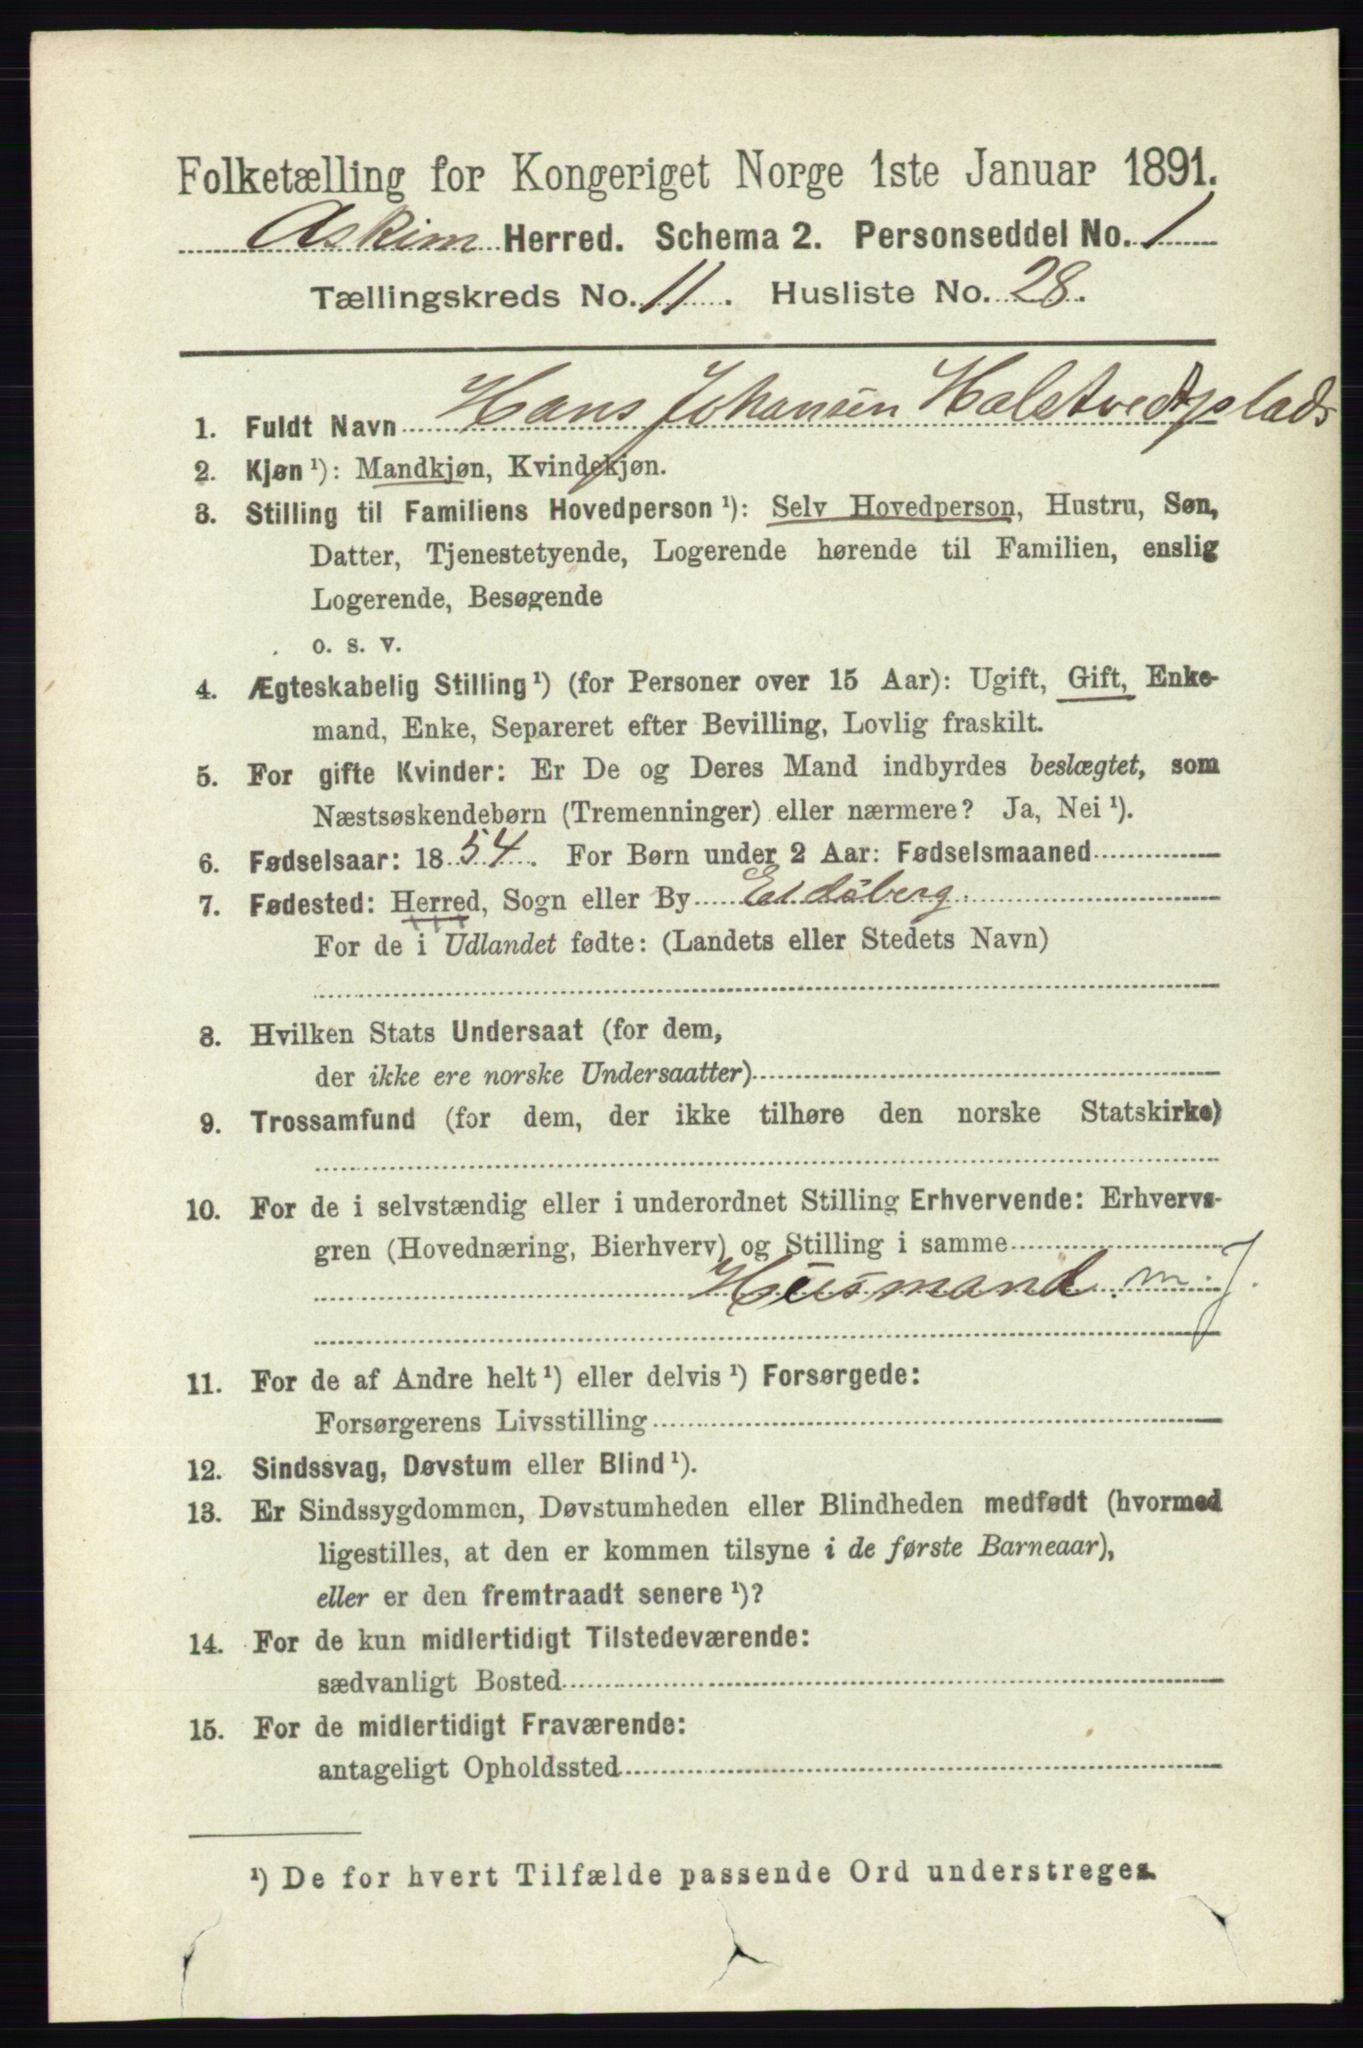 Folketælling for Kongeriget Norge 1ste Januar 1891.
Askim Herred. Schema 2. Personseddel No. 1
Tællingskreds No. 11. Husliste No. 28.
1. Fuldt Navn Hans Johansen Halstvedtplads
2. Kjøn¹): Mandkjøn, Kvindekjøn.
3. Stilling til Familiens Hovedperson¹): Selv Hovedperson, Hustru, Søn,
Datter, Tjenestetyende, Logerende hørende til Familien, enslig
Logerende, Besøgende
o. s. v.
4. Ægteskabelig Stilling¹) (for Personer over 15 Aar): Ugift, Gift, Enke-
mand, Enke, Separeret efter Bevilling, Lovlig fraskilt.
5. For gifte Kvinder: Er De og Deres Mand indbyrdes beslægtet, som
Næstsøskendebørn (Tremenninger) eller nærmere? Ja, Nei¹).
6. Fødselsaar: 1854. For Børn under 2 Aar: Fødselsmaaned
7. Fødested: Herred, Sogn eller By Eidsberg
For de i Udlandet fødte: (Landets eller Stedets Navn)
8. Hvilken Stats Undersaat (for dem,
der ikke ere norske Undersaatter)
9. Trossamfund (for dem, der ikke tilhøre den norske Statskirke)
10. For de i selvstændig eller i underordnet Stilling Erhvervende: Erhvervs-
gren (Hovednæring, Bierhverv) og Stilling i samme
Husmand m. J.
11. For de af Andre helt¹) eller delvis¹) Forsørgede:
Forsørgerens Livsstilling
12. Sindssvag, Døvstum eller Blind¹).
13. Er Sindssygdommen, Døvstumheden eller Blindheden medfødt (hvormed
ligestilles, at den er kommen tilsyne i de første Barneaar),
eller er den fremtraadt senere¹)?
14. For de kun midlertidigt Tilstedeværende:
sædvanligt Bosted
15. For de midlertidigt Fraværende:
antageligt Opholdssted
¹) De for hvert Tilfælde passende Ord understreges.